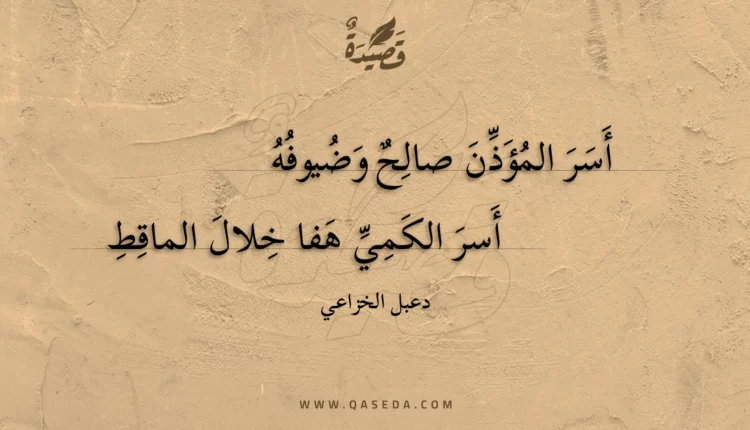 قَصِيدَةٌ
أَسَرَ المُؤَذِّنَ صالِحٌ وَضُيوفُهُ
أَسرَ الكَمِيِّ هَفا خِلالَ الماقِطِ
دعبل الخزاعي
WWW.QASEDA.COM